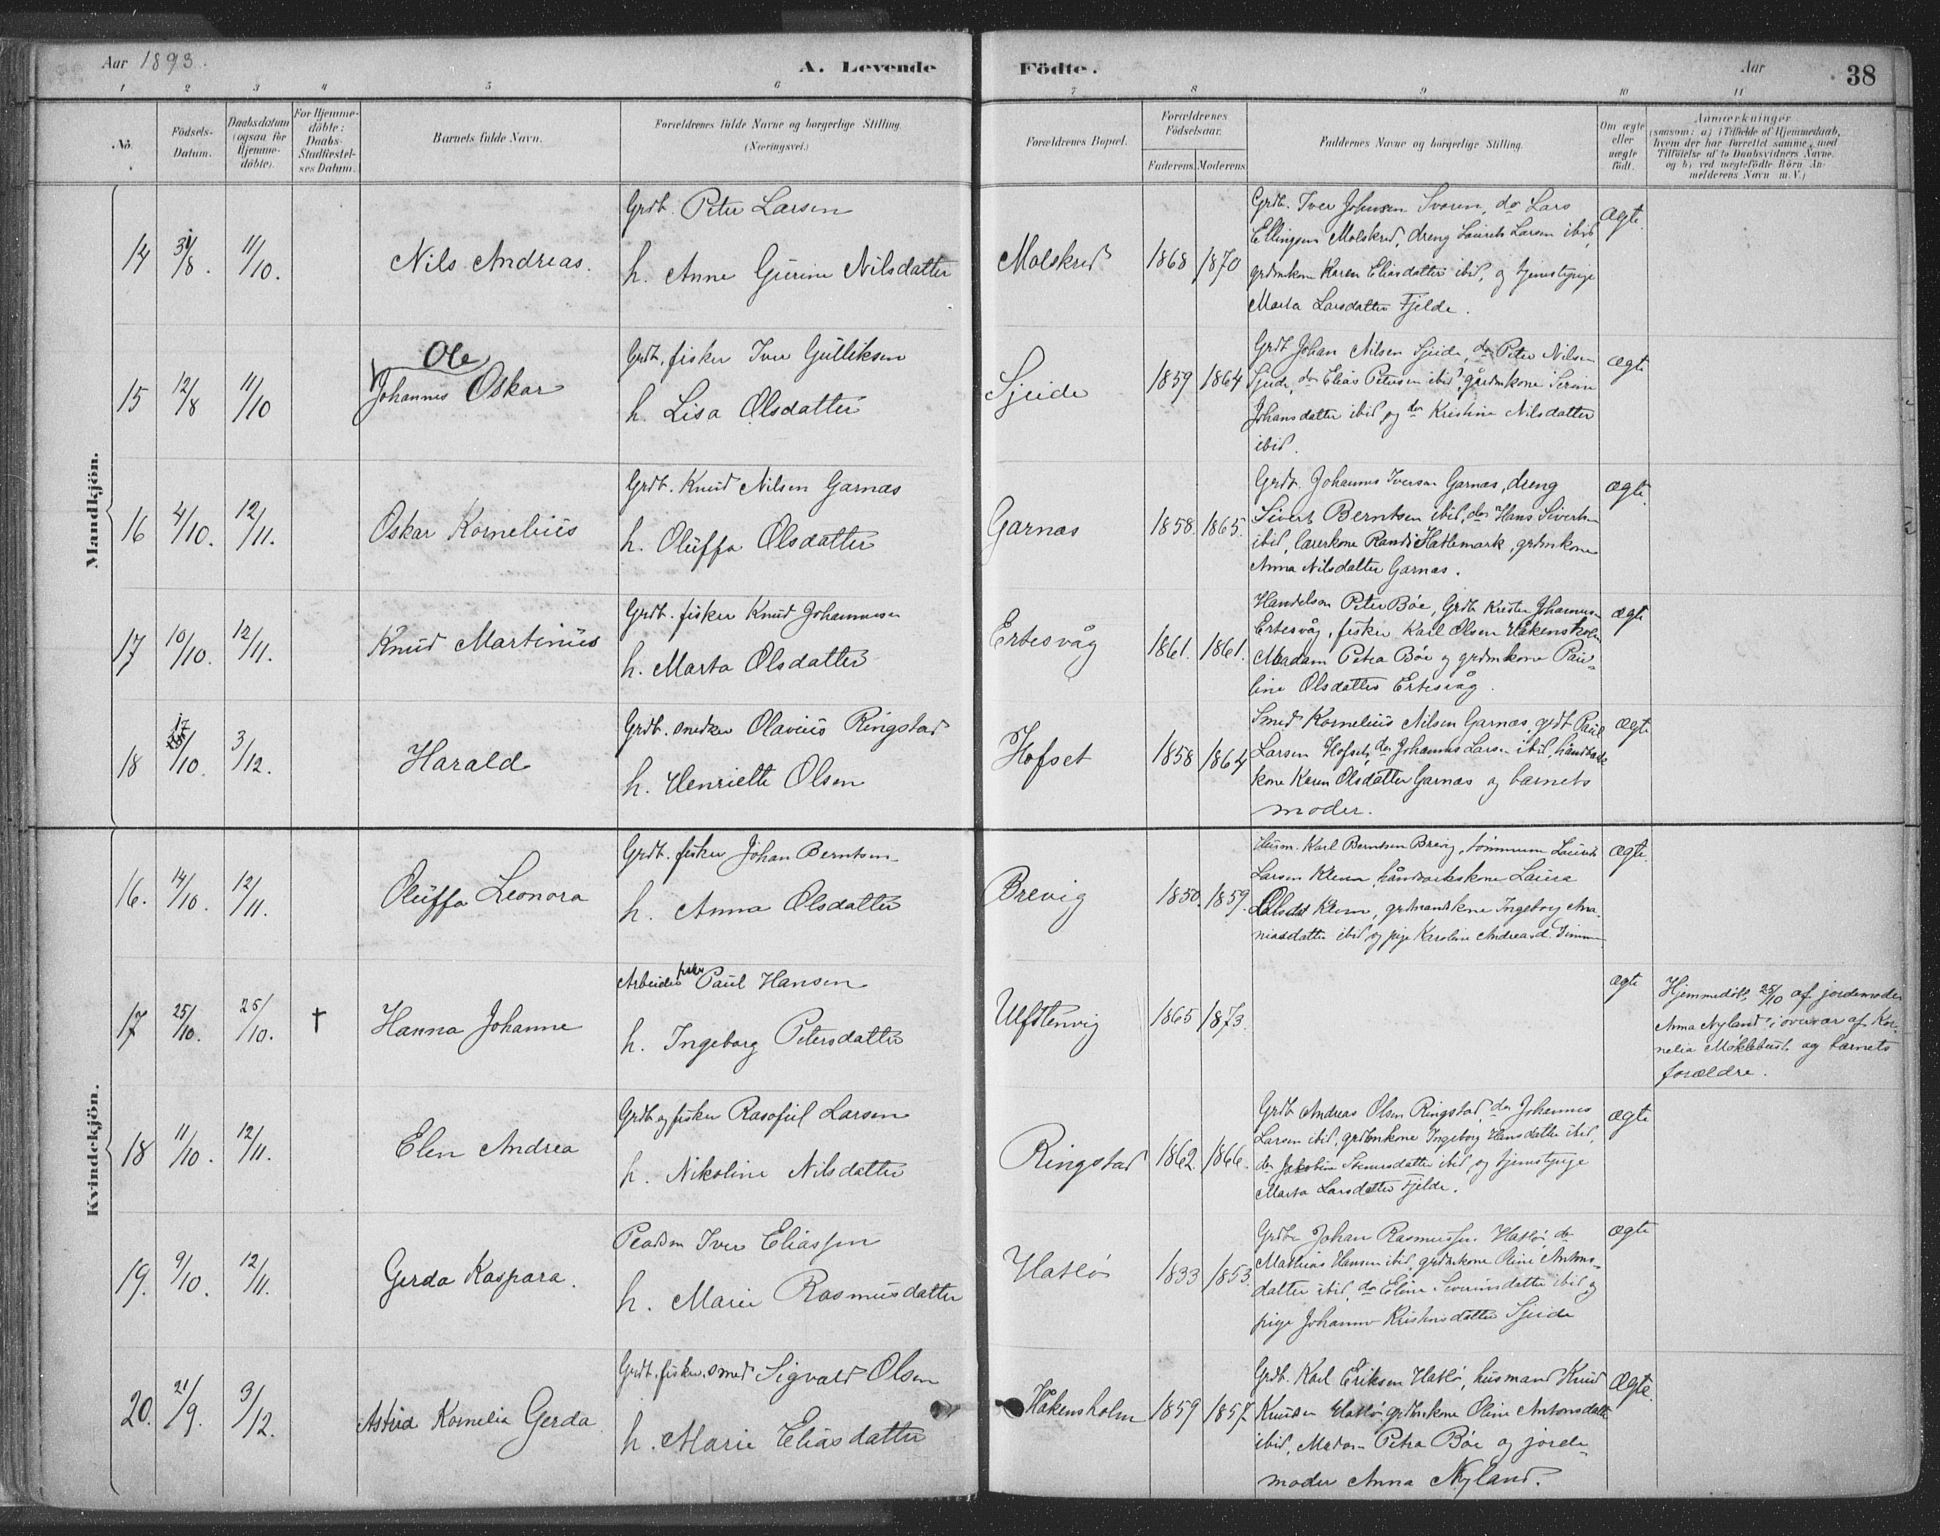 Aar 1893.
A. Levende Födte.
Aar
38
1 2 3 4 5 6 7 8 9 10 11
No.
Födsels-
Datum.
Daabsdatum
(ogsaa for
Hjemme-
döbte).
For Hjemme-
döbte:
Daabs-
Stadfæstel-
ses Datum.
Barnets fulde Navn.
Forældrenes fulde Navne og borgerlige Stilling
(Næringsvei.)
Forældrenes Bopæl.
Forældrenes
Födselsaar.
Faderens. Moderens.
Faddernes Navne og borgerlige Stilling.
Om ægte
eller
uægte
födt.
Anmærkninger
(saasom: a) i Tilfælde af Hjemmedaab,
hvem der har forrettet samme, med
Tilföielse af to Daabsvidners Navne,
og b) ved uægtefödte Börn An-
melderens Navn m. V.)
Mandkjön.
14
31/8.
11/10.
Nils Andreas.
Grdb. Peter Larsen
h. Anne Gurine Nilsdatter
Molskred
1868 1870
Grdb. Iver Johnsen Svoren, do Lars
Ellingsen Molskred, dreng Laurits Larsen ibid,
grdmkone Karen Eliasdatter ibid, og tjenstpige
Marta Larsdatter Fjelde.
ægte.
15
12/8
11/10
Ole
Johannes Oskar
Grdb. fisker Iver Gulliksen
h. Lisa Olsdatter
Sjeide
1859 1864
Grdb Johan Nilsen Sjeide, do Peter Nilsen
Sjeide, do Elias Petersen ibid, gårdmkone Serine
Johansdatter ibid og do Kristine Nilsdatter
ibid.
ægte
16
4/10.
12/11.
Oskar Kornelius
Grdb. Knud Nilsen Garnæs
h. Oluffa Olsdatter
Garnæs
1858. 1865.
Grdb. Johannes Iversen Garnæs, dreng
Sivert Berntsen ibid, do Hans Sivertsen
ibid, lærerkone Randi Hatlemark, grdmkone
Anna Nilsdatter Garnæs.
ægte.
17
10/10.
12/11.
Knud Martinus
Grdb. fisker Knud Johannesen
h. Marta Olsdatter
Ertesvåg
1861. 1861.
Handelsm Peter Bøe, Grdb Kristen Johannesen
Ertesvåg, fisker Karl Olsen Håkensholm
Madam Petra Bøe og grdmkone Pau-
line Olsdatter Ertesvåg.
ægte
18
17/10.
3/12.
Harald
Grdb. snedker Olavius Ringstad
h. Henriette Olsen
Hofset
1858 1864
Smed Kornelius Nilsen Garnæs, grdb Paul
Larsen Hofseth, do Johannes Larsen ibid, håndværks
kone Karen Olsdatter Garnæs og barnets
moder.
ægte
Kvindekjön.
16.
14/10.
12/11.
Oluffa Leonora
Grdb. fisker Johan Berntsen
h. Anna Olsdatter
Brevig
1850. 1859.
Husm. Karl Berntsen Brevig, tømmerm Laurits
Larsen Klem, håndverkskone Laura
Olsdat Klem, grdmandskone Ingeborg Ana-
niasdatter ibid og pige Karoline Andreasd.
ægte.
17
25/10.
25/10.
†
Hanna Johanne
Arbeider fisker Paul Hansen
h. Ingeborg Petersdatter
Ulfstenvig
1865 1873.
ægte
Hjemmedøbt 25/10 af jordemoder
Anna Nyland i overvær af Kor-
nelia Møklebust og barnets
forældre.
18
11/10.
12/11.
Elen Andrea
Grdb og fisker Rasofiel Larsen
h. Nikoline Nilsdatter
Ringstad
1862 1866.
Grdb Andreas Olsen Ringstad, do Johannes
Larsen ibid, grdmkone Ingeborg Hansdatter ibid,
do Jakobine ibid, og tjenstpige
Marta Larsdatter Fjelde.
ægte
19.
9/10.
12/11.
Gerda Kaspara.
Iver Eliassen
h. Marie Rasmusdatter
Hatlø
1833 1853.
Grdb Johan Rasmussen Hatlø do
Mathias Hansen ibid, grdmkone Oline Antons-
datter ibid, do Eline Severinsdatter ibid og
pige Johanne Kristensdatter Sjeide
ægte
20.
21/9.
3/12.
Astrid Kornelia Gerda
Grdb. fisker. smed Sigvald Olsen
h. Marie Eliasdatter
Håkensholm
1859 1857.
Grdb. Karl Eriksen Hatlø, husmand Knud
Knudsen Hatlø, grdmkone Oline Antonsdatter
ibid, Madam Petra Bøe og jorde-
moder Anna Nyland.
ægte.